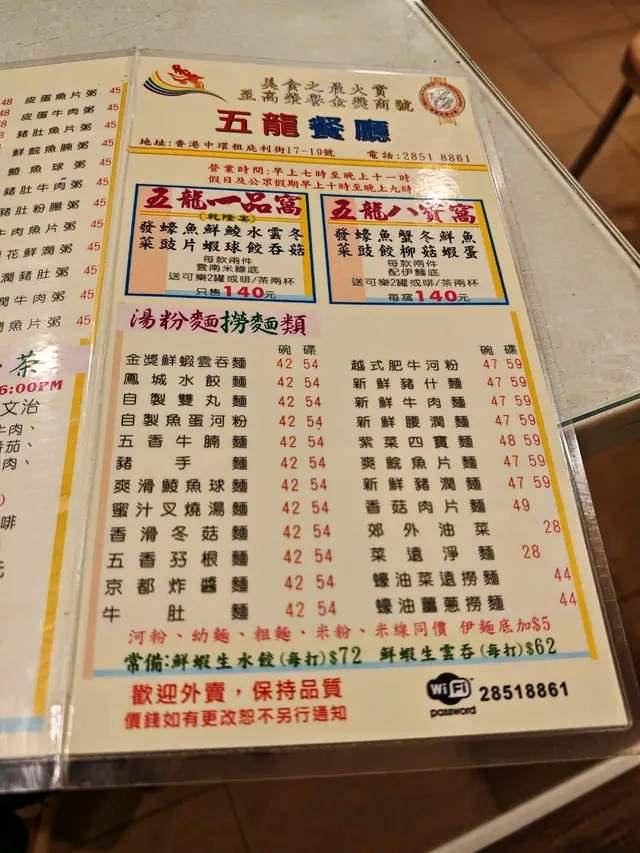 皮蛋魚片粥 45
皮蛋牛肉粥 45
豬肚魚片粥 45
鮮鯇魚腩粥 45
鯪魚球粥 45
豬肚牛肉粥 45
豬肚粉腸粥 45
花鮮潤粥 45
潤豬肚粥 45
潤牛肉粥 45
潤魚片粥 45
茶
6:00PM
文治
牛肉、
番茄、
肉、
啡
元
美食之最大賞
至高榮譽金獎商號
五龍餐廳
地址:香港中環租庇利街17-19號 電話:2851 8861
營業時間:早上七時至晚上十一時
假日及公眾假期早上十時至晚上九時
五龍一品窩
(乾隆宴)
發蠔魚鮮鯪水雲冬
菜豉片蝦球餃吞菇
每款兩件
雲南米線底
送可樂2罐或啡/茶兩杯
只售140元
五龍八寶窩
發蠔魚蟹冬鮮魚
菜豉餃柳菇蝦蛋
每款兩件
配伊麵底
送可樂2罐或啡/茶兩杯
每窩140元
湯粉麵撈麵類
碗 碟
金獎鮮蝦雲吞麵 42 54
鳳城水餃麵 42 54
自製雙丸麵 42 54
自製魚蛋河粉 42 54
五香牛腩麵 42 54
豬手麵 42 54
爽滑鯪魚球麵 42 54
蜜汁叉燒湯麵 42 54
香滑冬菇麵 42 54
五香孖根麵 42 54
京都炸醬麵 42 54
牛肚麵 42 54
碗 碟
越式肥牛河粉 47 59
新鮮豬什麵 47 59
新鮮牛肉麵 47 59
新鮮腰潤麵 47 59
紫菜四寶麵 48 59
爽鯇魚片麵 47 59
新鮮豬潤麵 47 59
香菇肉片麵 49
郊外油菜 28
菜遠淨麵 28
蠔油菜遠撈麵 44
蠔油薑蔥撈麵 44
河粉、幼麵、粗麵、米粉、米線同價 伊麵底加$5
常備:鮮蝦生水餃(每打)$72 鮮蝦生雲吞(每打)$62
歡迎外賣，保持品質
價錢如有更改恕不另行通知
WiFi 28518861
password